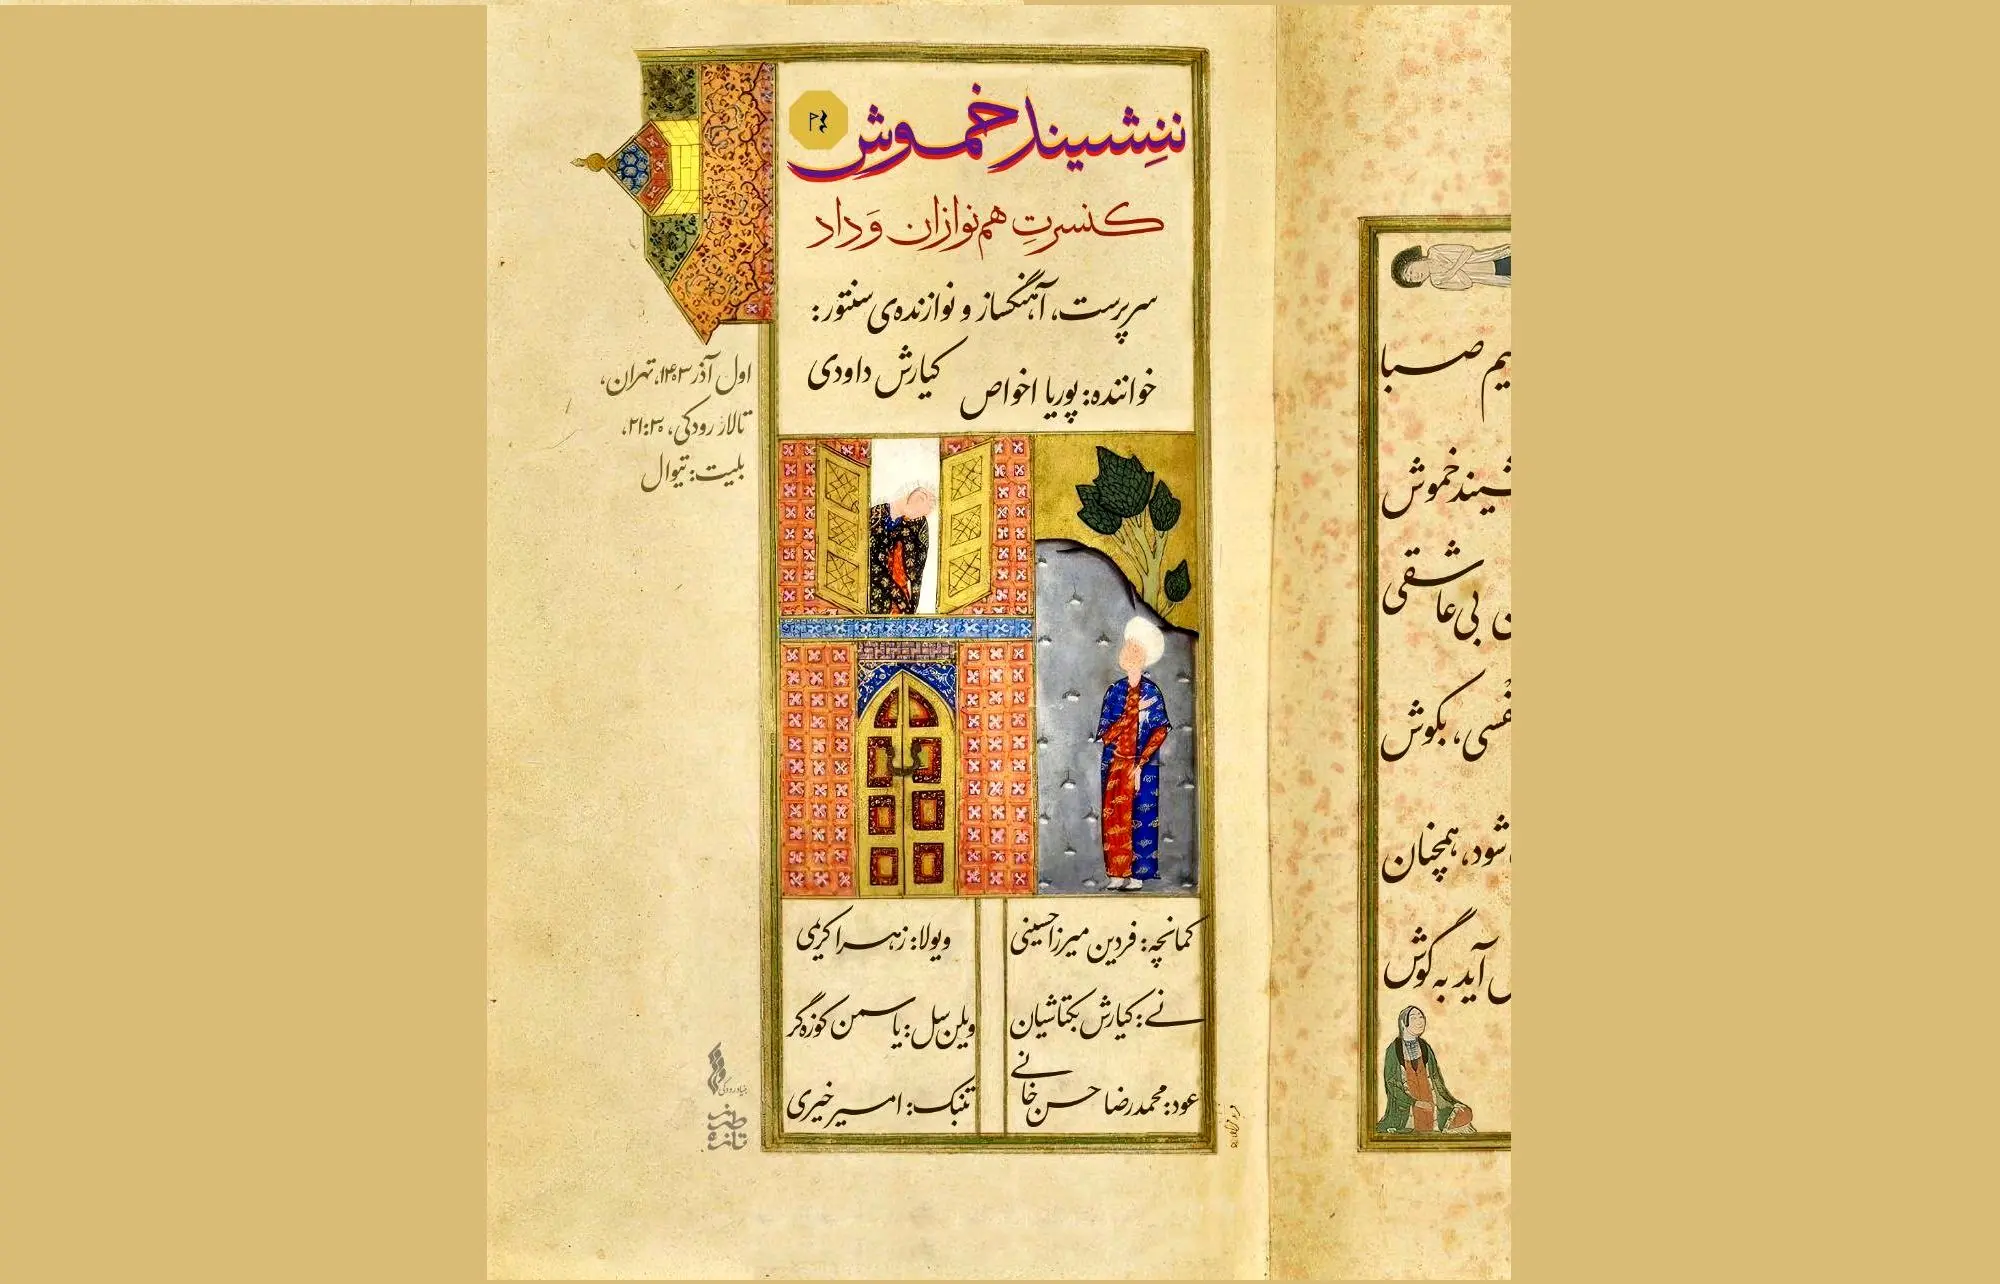 ننِشیند خموش
کنسرتِ هم‌نوازان وَداد
سرپرست، آهنگساز و نوازنده‌ی سنتور:
کیارش داودی
خواننده: پوریا اخواص
اول آذر ۱۴۰۳، تهران،
تالار رودکی، ۲۱:۳۰،
بلیت: تیوال
کمانچه: فردین میرزاحسینی
نے: کیارش بکتاشیان
عود: محمدرضا حسن‌خانے
ویولا: زهرا کریمی
ویلن‌سل: یاسمن کوزه‌گر
تنبک: امیر خیری
بنیاد رودکی
یم صبا
شیند خموش
ن بی‌عاشقی
فسی، بکوش
شود، همچنان
آید به گوش